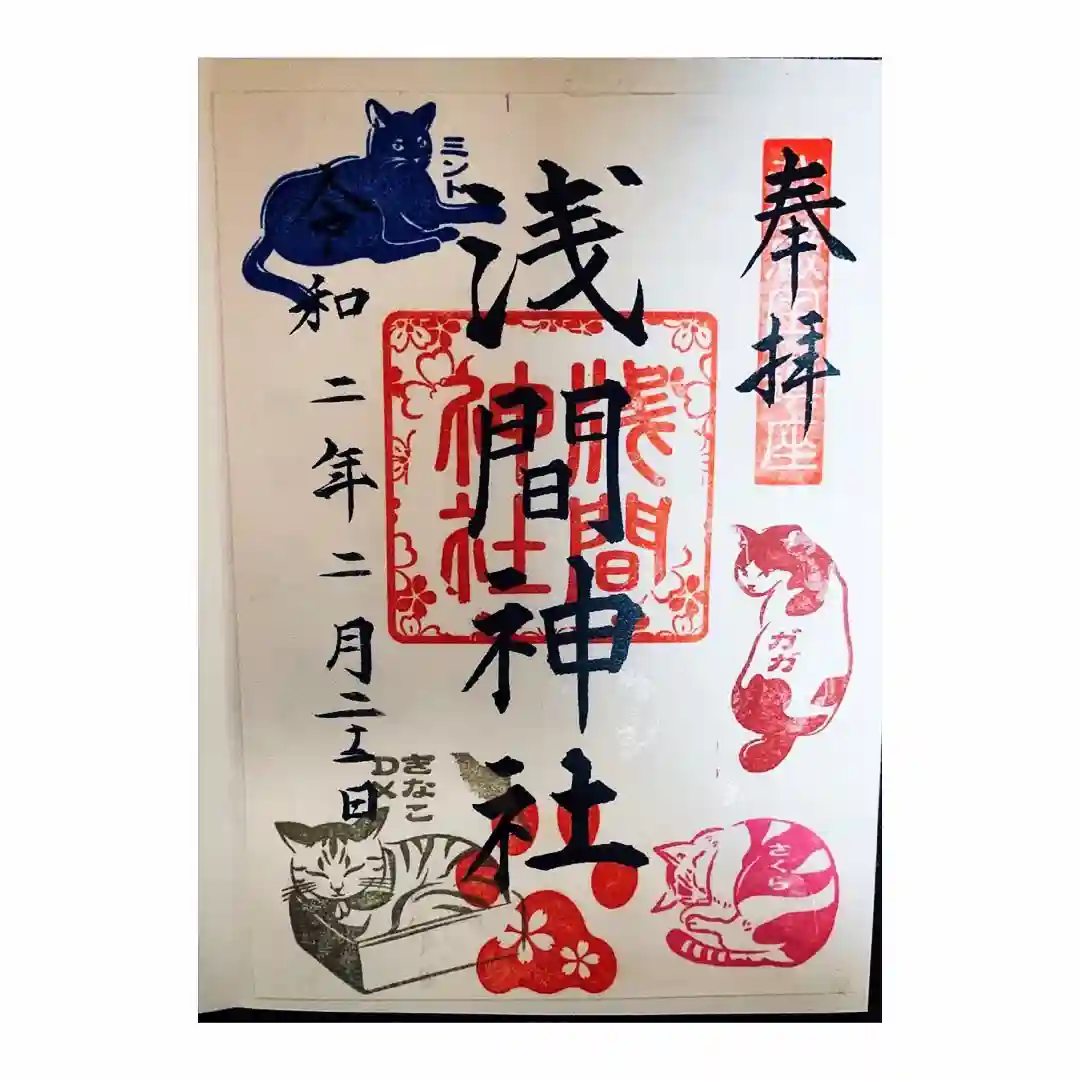 奉拝
ガガ
さくら
浅間神社
淺間神社
ミント
令和二年二月二十二日
きなこ
DX